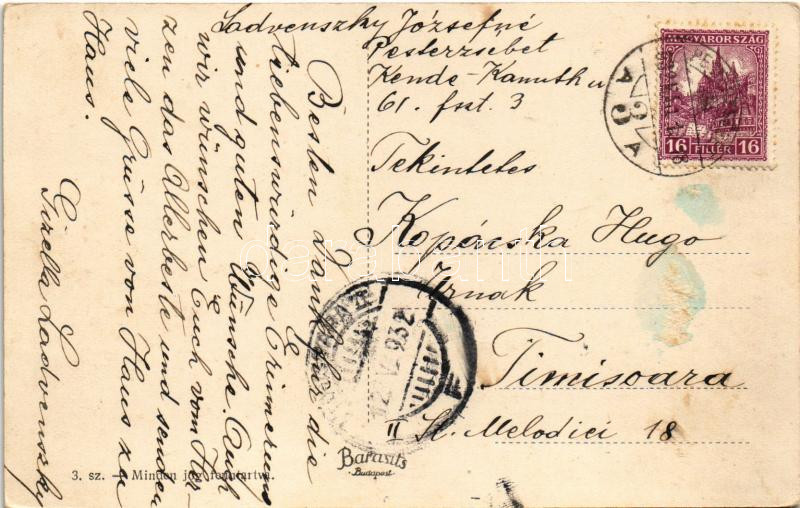 Ladvenszky Józsefné
Pesterzsebet
Kende-Kanuth u
61. fszt. 3
MAGYARORSZÁG
16 FILLÉR 16
Tekintetes
Kopácska Hugo
Úrnak
Timisoara
II St. Melodiei 18
Besten Dank für die
liebenswürdige Erinerung
und guten Wünsche. Auch
wir wünschen Euch vom Her-
zen das Allerbeste und senden
viele Grüsse von Haus zu
Haus.
Gizella Ladvenszky
932
Barasits
Budapest
3. sz. — Minden jog fenntartva.